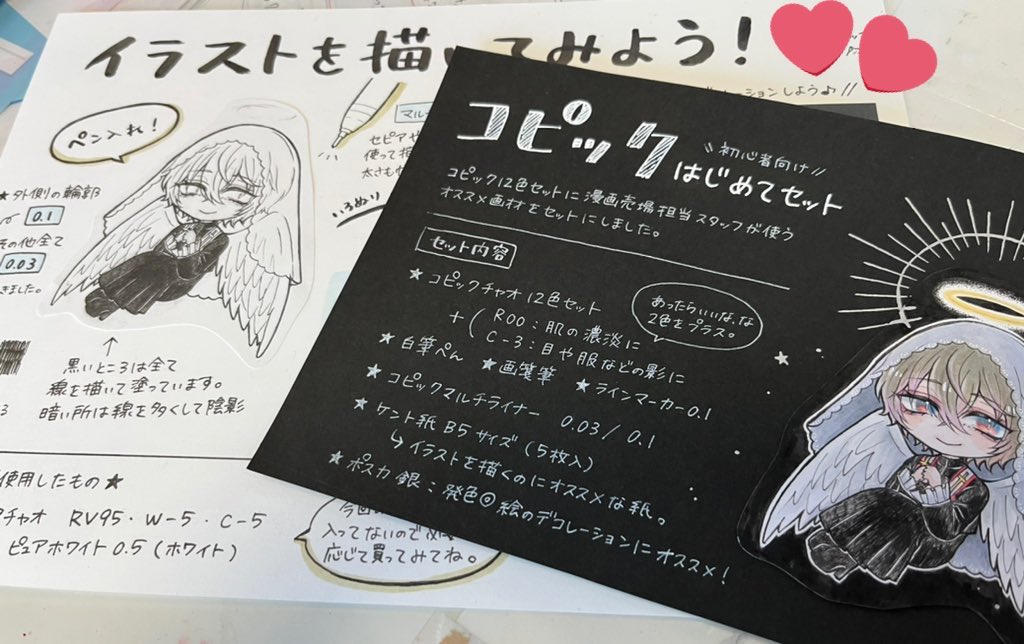 イラストを描いてみよう!
ーションしよう♪//
ペン入れ!
★外側の輪郭
0.1
その他全て
0.03
きました。
↑
黒いところは全て
線を描いて塗っています。
暗い所は線を多くして陰影
マル
セピアや
使って
太さも
いろぬり
使用したもの★
チャオ RV95・W-5・C-5
ピュアホワイト0.5(ホワイト)
入ってないので
応じて買ってみてね。
コピック
\\初心者向け//
はじめてセット
コピック12色セットに漫画売場担当スタッフが使う
オススメ画材をセットにしました。
セット内容
★コピックチャオ12色セット
+(R00:肌の濃淡に
C-3:目や服などの影に
あったらいいな、な
2色をプラス。
★白筆ぺん ★画箋筆 ★ラインマーカー0.1
★コピックマルチライナー 0.03/0.1
★ケント紙 B5サイズ(5枚入)
↳イラストを描くのにオススメな紙。
★ポスカ 銀:発色◎絵のデコレーションにオススメ!